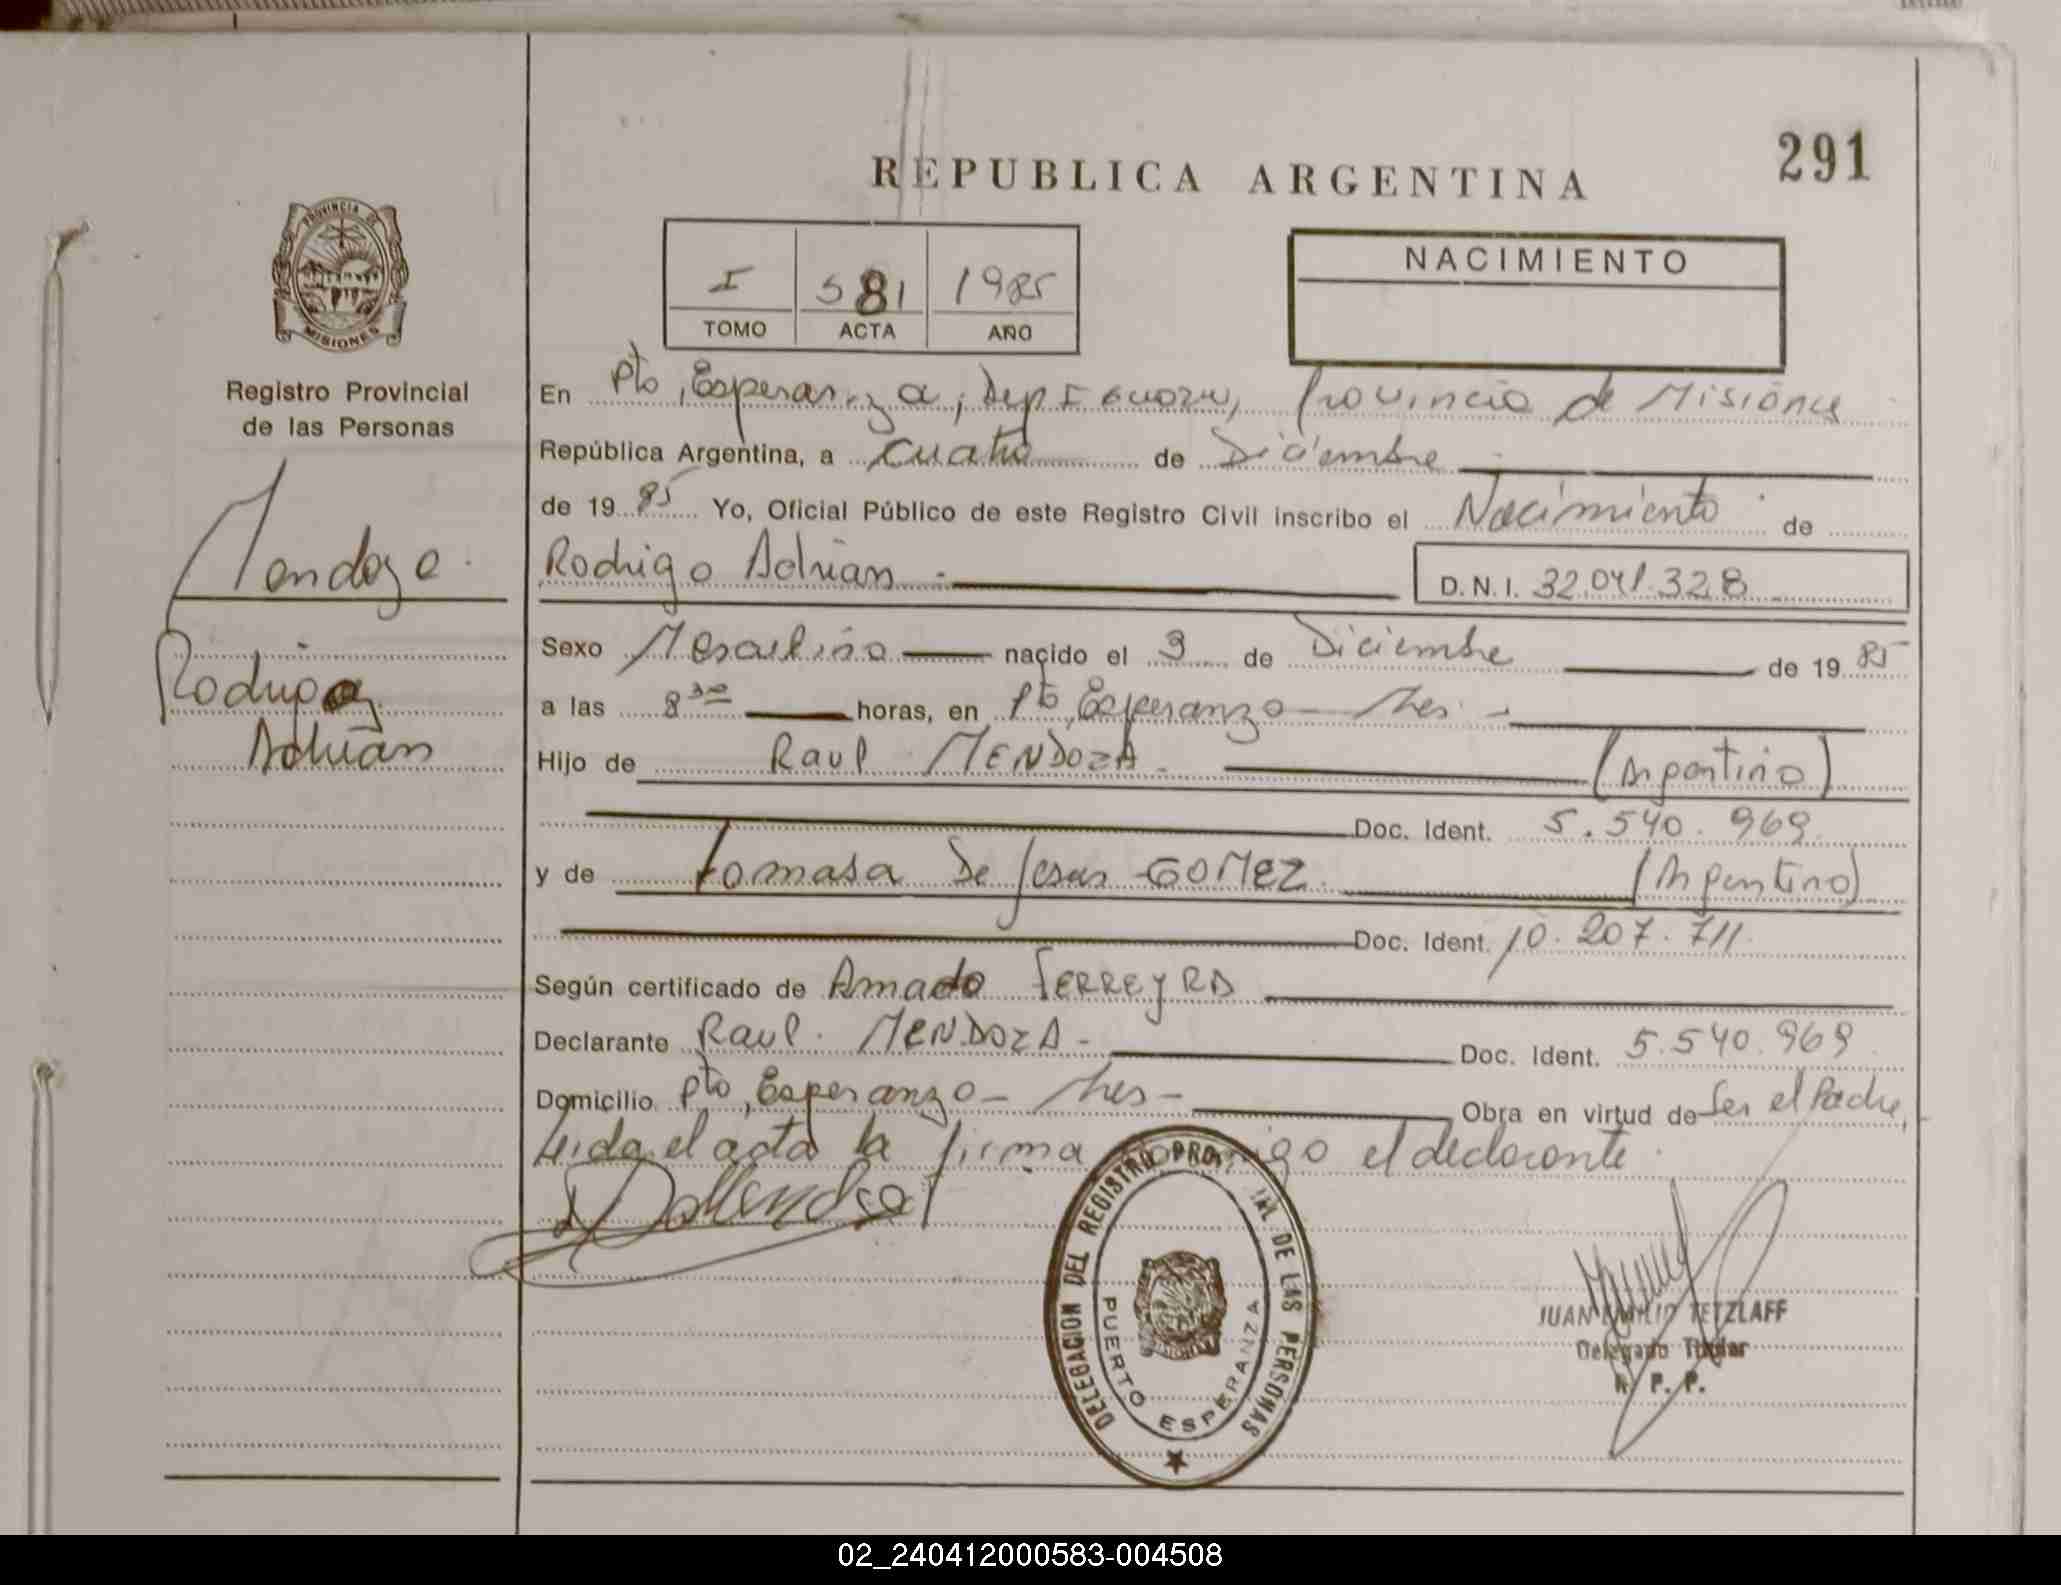 291
REPUBLICA ARGENTINA
PROVINCIA DE
MISIONES
Registro Provincial
de las Personas
Mendoza
Rodrigo
Adrián
I 581 1985
TOMO ACTA AÑO
NACIMIENTO
En Pto. Esperanza, Dep Iguazu, Provincia de Misiones
República Argentina, a cuatro de Diciembre
de 1985 Yo, Oficial Público de este Registro Civil inscribo el Nacimiento de
Rodrigo Adrián D.N.I. 32.041.328
Sexo Masculino nacido el 3 de Diciembre de 1985
a las 8 30 horas, en Pto. Esperanza - Mes -
Hijo de Raul MENDOZA (Argentino)
Doc. Ident. 5.540.969
y de Tomasa De Jesus GOMEZ (Argentina)
Doc. Ident. 10.207.711
Según certificado de Amado FERREYRA
Declarante Raul MENDOZA - Doc. Ident. 5.540.969
Domicilio Pto. Esperanza - Mes - Obra en virtud de Ser el Padre,
Leida el acta la firma conmigo el declarante.
DELEGACION DEL REGISTRO PROVINCIAL DE LAS PERSONAS
PUERTO ESPERANZA
JUAN EMILIO TETZLAFF
Delegado Titular
R. P. P.
02_240412000583-004508